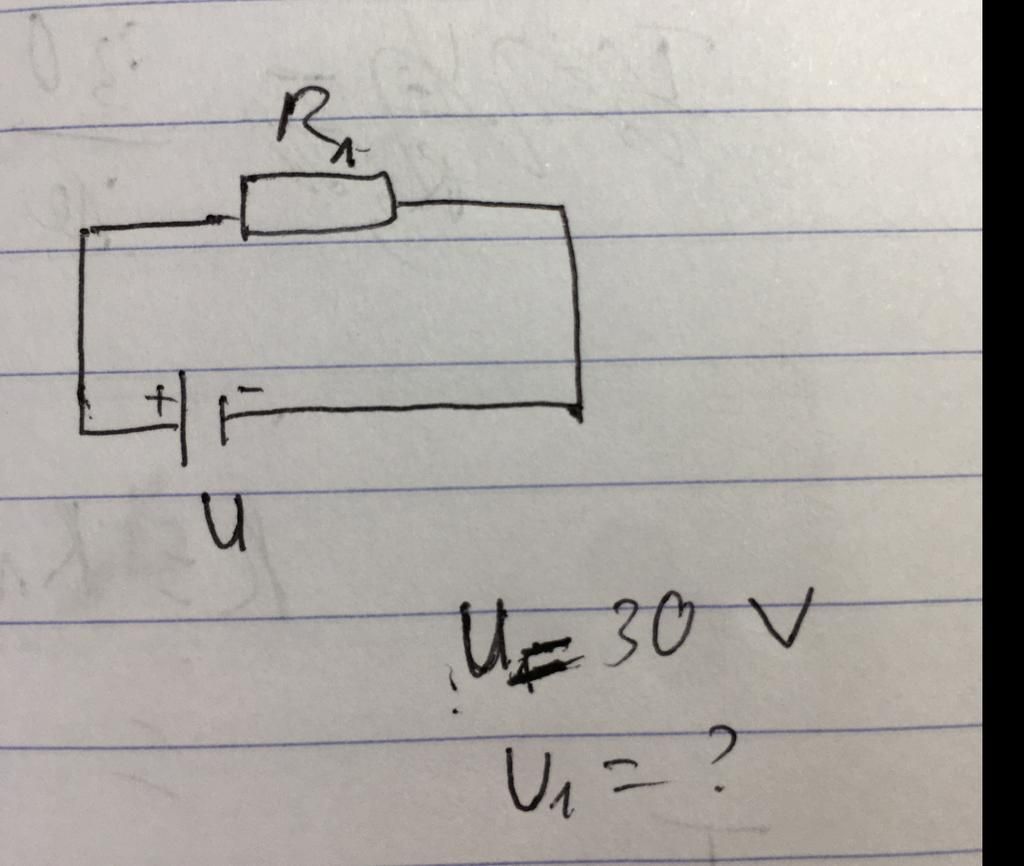 R₁
+ -
U
U = 30 V
U₁ = ?